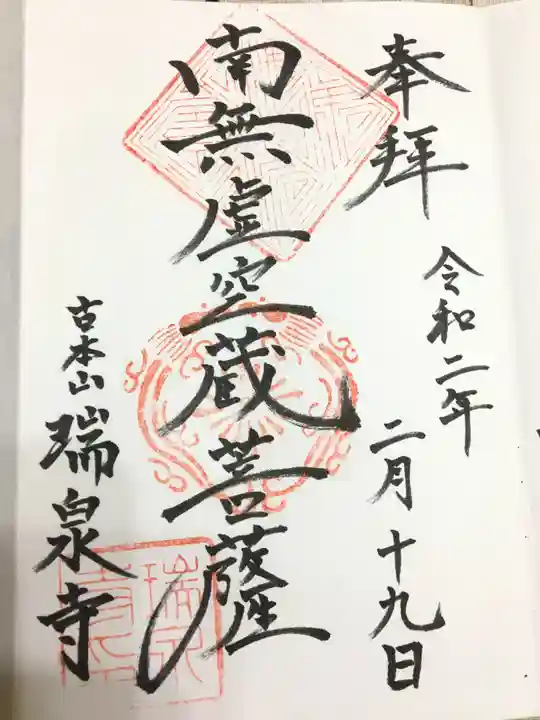 奉拝
令和二年
二月十九日
南無虚空蔵菩薩
古本山
瑞泉寺